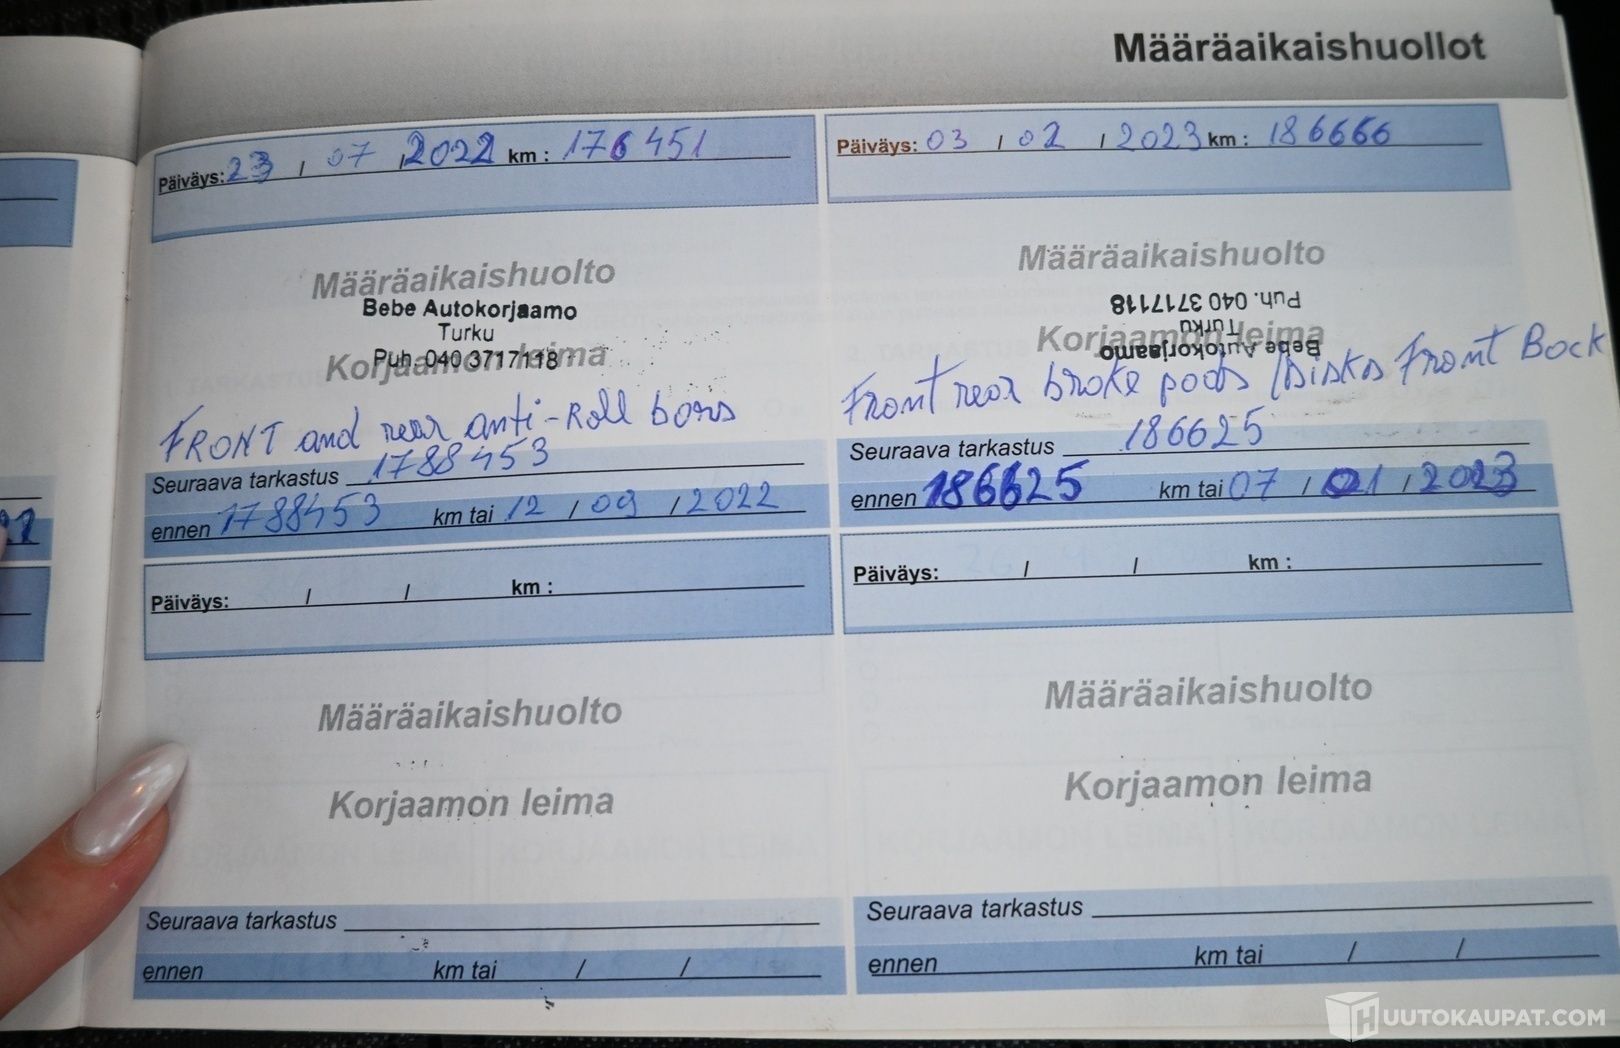 Määräaikaishuollot
Päiväys: 23 / 07 / 2022 km : 176451
Määräaikaishuolto
Bebe Autokorjaamo
Turku
Korjaamon leima
Puh. 040 3717118
FRONT and rear anti-Roll bars
Seuraava tarkastus 1788453
ennen 1788453 km tai 12 / 09 / 2022
Päiväys: 03 / 02 / 2023 km : 186666
Määräaikaishuolto
Puh. 040 3717118
Turku
Korjaamon leima
Bebe Autokorjaamo
Front rear broke pods / Disks Front Back
Seuraava tarkastus 186625
ennen 186625 km tai 07 / 01 / 2023
Päiväys: / / km :
Määräaikaishuolto
Korjaamon leima
Seuraava tarkastus
ennen km tai / /
Päiväys: / / km :
Määräaikaishuolto
Korjaamon leima
Seuraava tarkastus
ennen km tai / /
HUUTOKAUPAT.COM